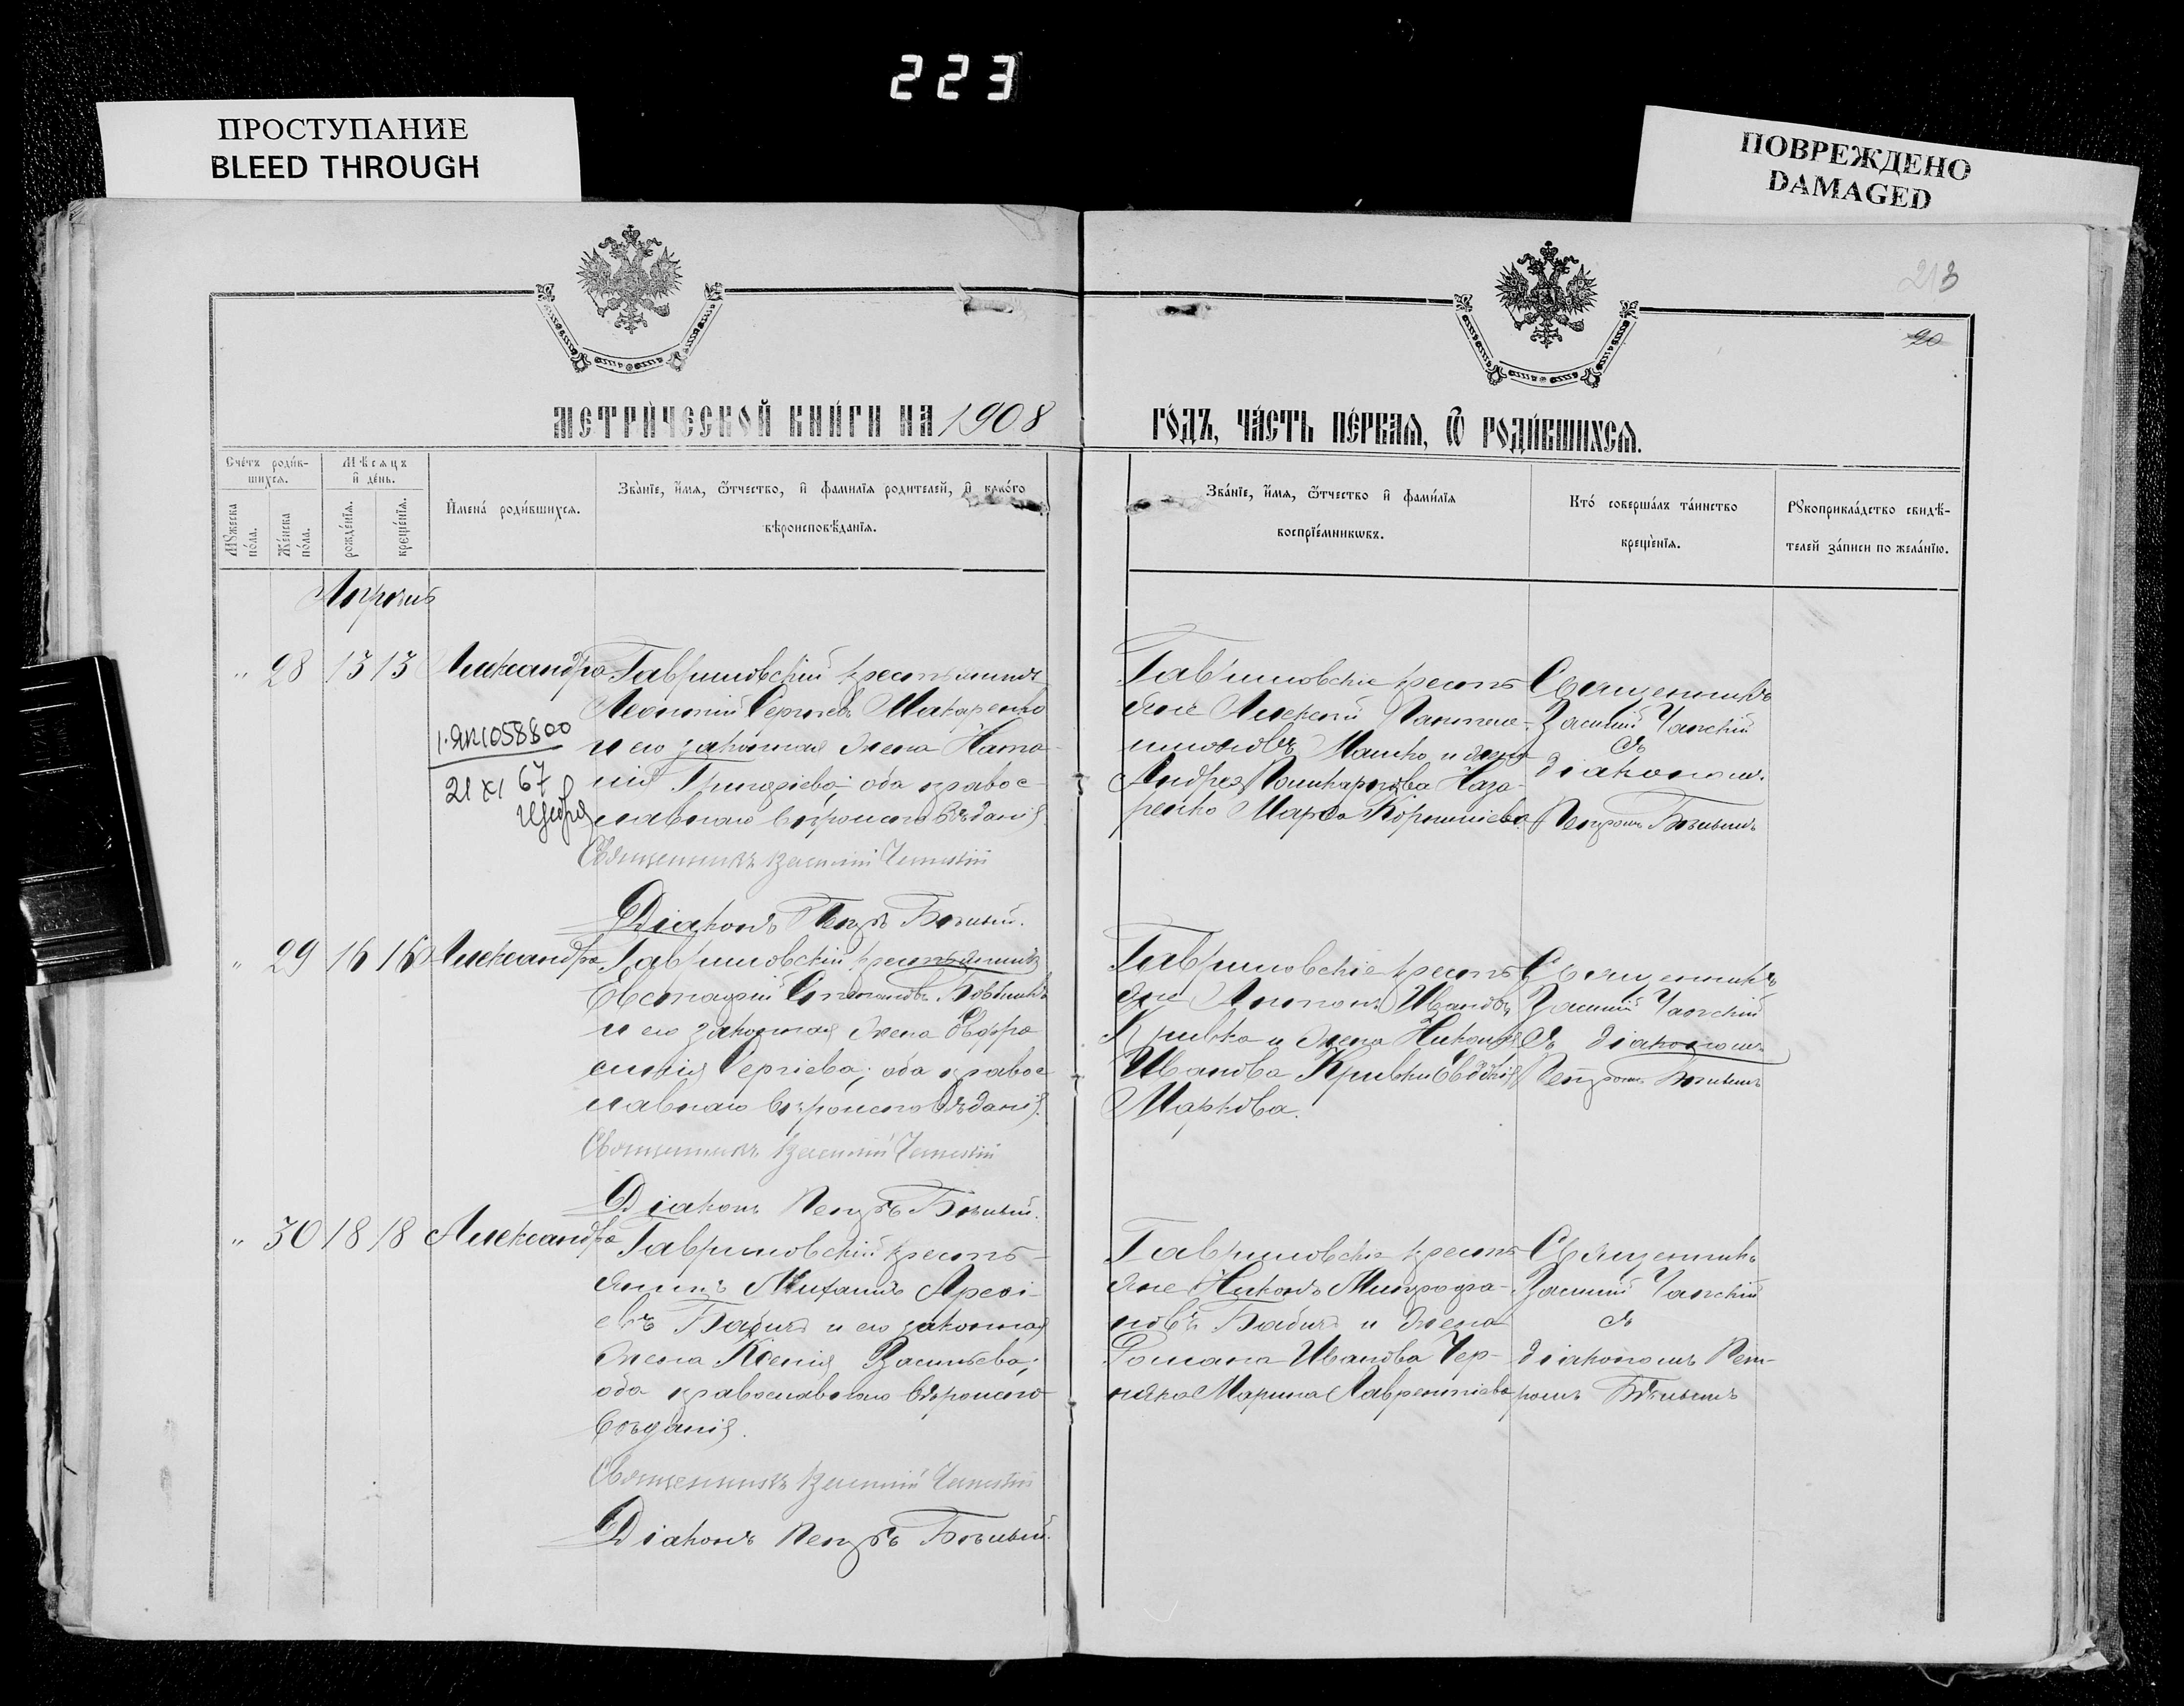 223
ПРОСТУПАНИЕ
BLEED THROUGH
ПОВРЕЖДЕНО
DAMAGED
213
20
МЕТРИ́ЧЕСКОЙ КНИ́ГИ НА 1908
ГО́ДЪ, ЧА́СТЬ ПЕ́РВАЯ, Ѿ РОДИ́ВШИХСЯ.
Сче́тъ роди́в-
шихся.
Мѣсяцъ
и҆ де́нь.
Мꙋ́жеска
по́ла.
Же́нска
по́ла.
рожде́нїя.
креще́нїя.
И҆мена́ роди́вшихся.
Зва́нїе, и҆́мя, ѻ҆́тчество, и҆ фами́лїя родителей, и҆ како́го
вѣроисповѣ́данїя.
Зва́нїе, и҆́мя, ѻ҆́тчество и҆ фами́лїя
воспрїе́мникѡвъ.
Кто́ соверша́лъ та́инство
креще́нїя.
Рꙋкоприкла́дство свидѣ́-
телей за́писи по жела́нїю.
Апрѣль
" 28 13 13 Александра
Гавриловскій крестьянинъ
Леонтій Сергіевъ Макаренко
и его законная жена Ната-
лія Григоріева; оба правос-
лавнаго вѣроисповѣданія
Священникъ Василій
Діаконъ Петръ
1-ЯК 1058800
21 XI 67
Гавриловскіе крестъ
яне Алексѣй Пантеле-
имоновъ Машко и жена
Андрея Поликарпова Наза-
ренко Марѳа Корниліева
Священникъ
Василій
съ
діакономъ
Петромъ
" 29 16 16 Александра
Гавриловскій крестьянинъ
Евстафій Степановъ
и его законная жена Евфро
синія Сергіева; оба правос
лавнаго вѣроисповѣданія.
Священникъ Василій
Діаконъ Петръ
Гавриловскіе крестъ
яне Антонъ Ивановъ
Кривко и жена
Иванова Кривки Евдокія
Маркова.
Священникъ
Василій
съ діакономъ
Петромъ
" 30 18 18 Александра
Гавриловскій кресть-
янинъ Михаилъ
Бабичъ и его законная
жена Ксенія Васильева;
оба православнаго вѣроиспо-
вѣданія.
Священникъ Василій
Діаконъ Петръ
Гавриловскіе кресть
яне Никонъ Митрофа-
новъ Бабичъ и жена
Романа Иванова Чер-
няка Марина Лаврентіева
Священникъ
Василій
съ
діакономъ Пет-
ромъ